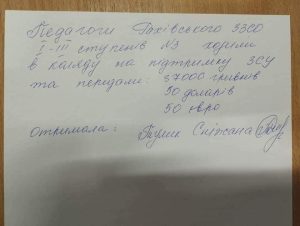 Педагоги Рахівського ЗЗСО
І-ІІІ ступенів №3 ходили
в коляду на підтримку ЗСУ
та передали: 37000 гривнів
50 доларів
50 євро
Отримала: Сніжана